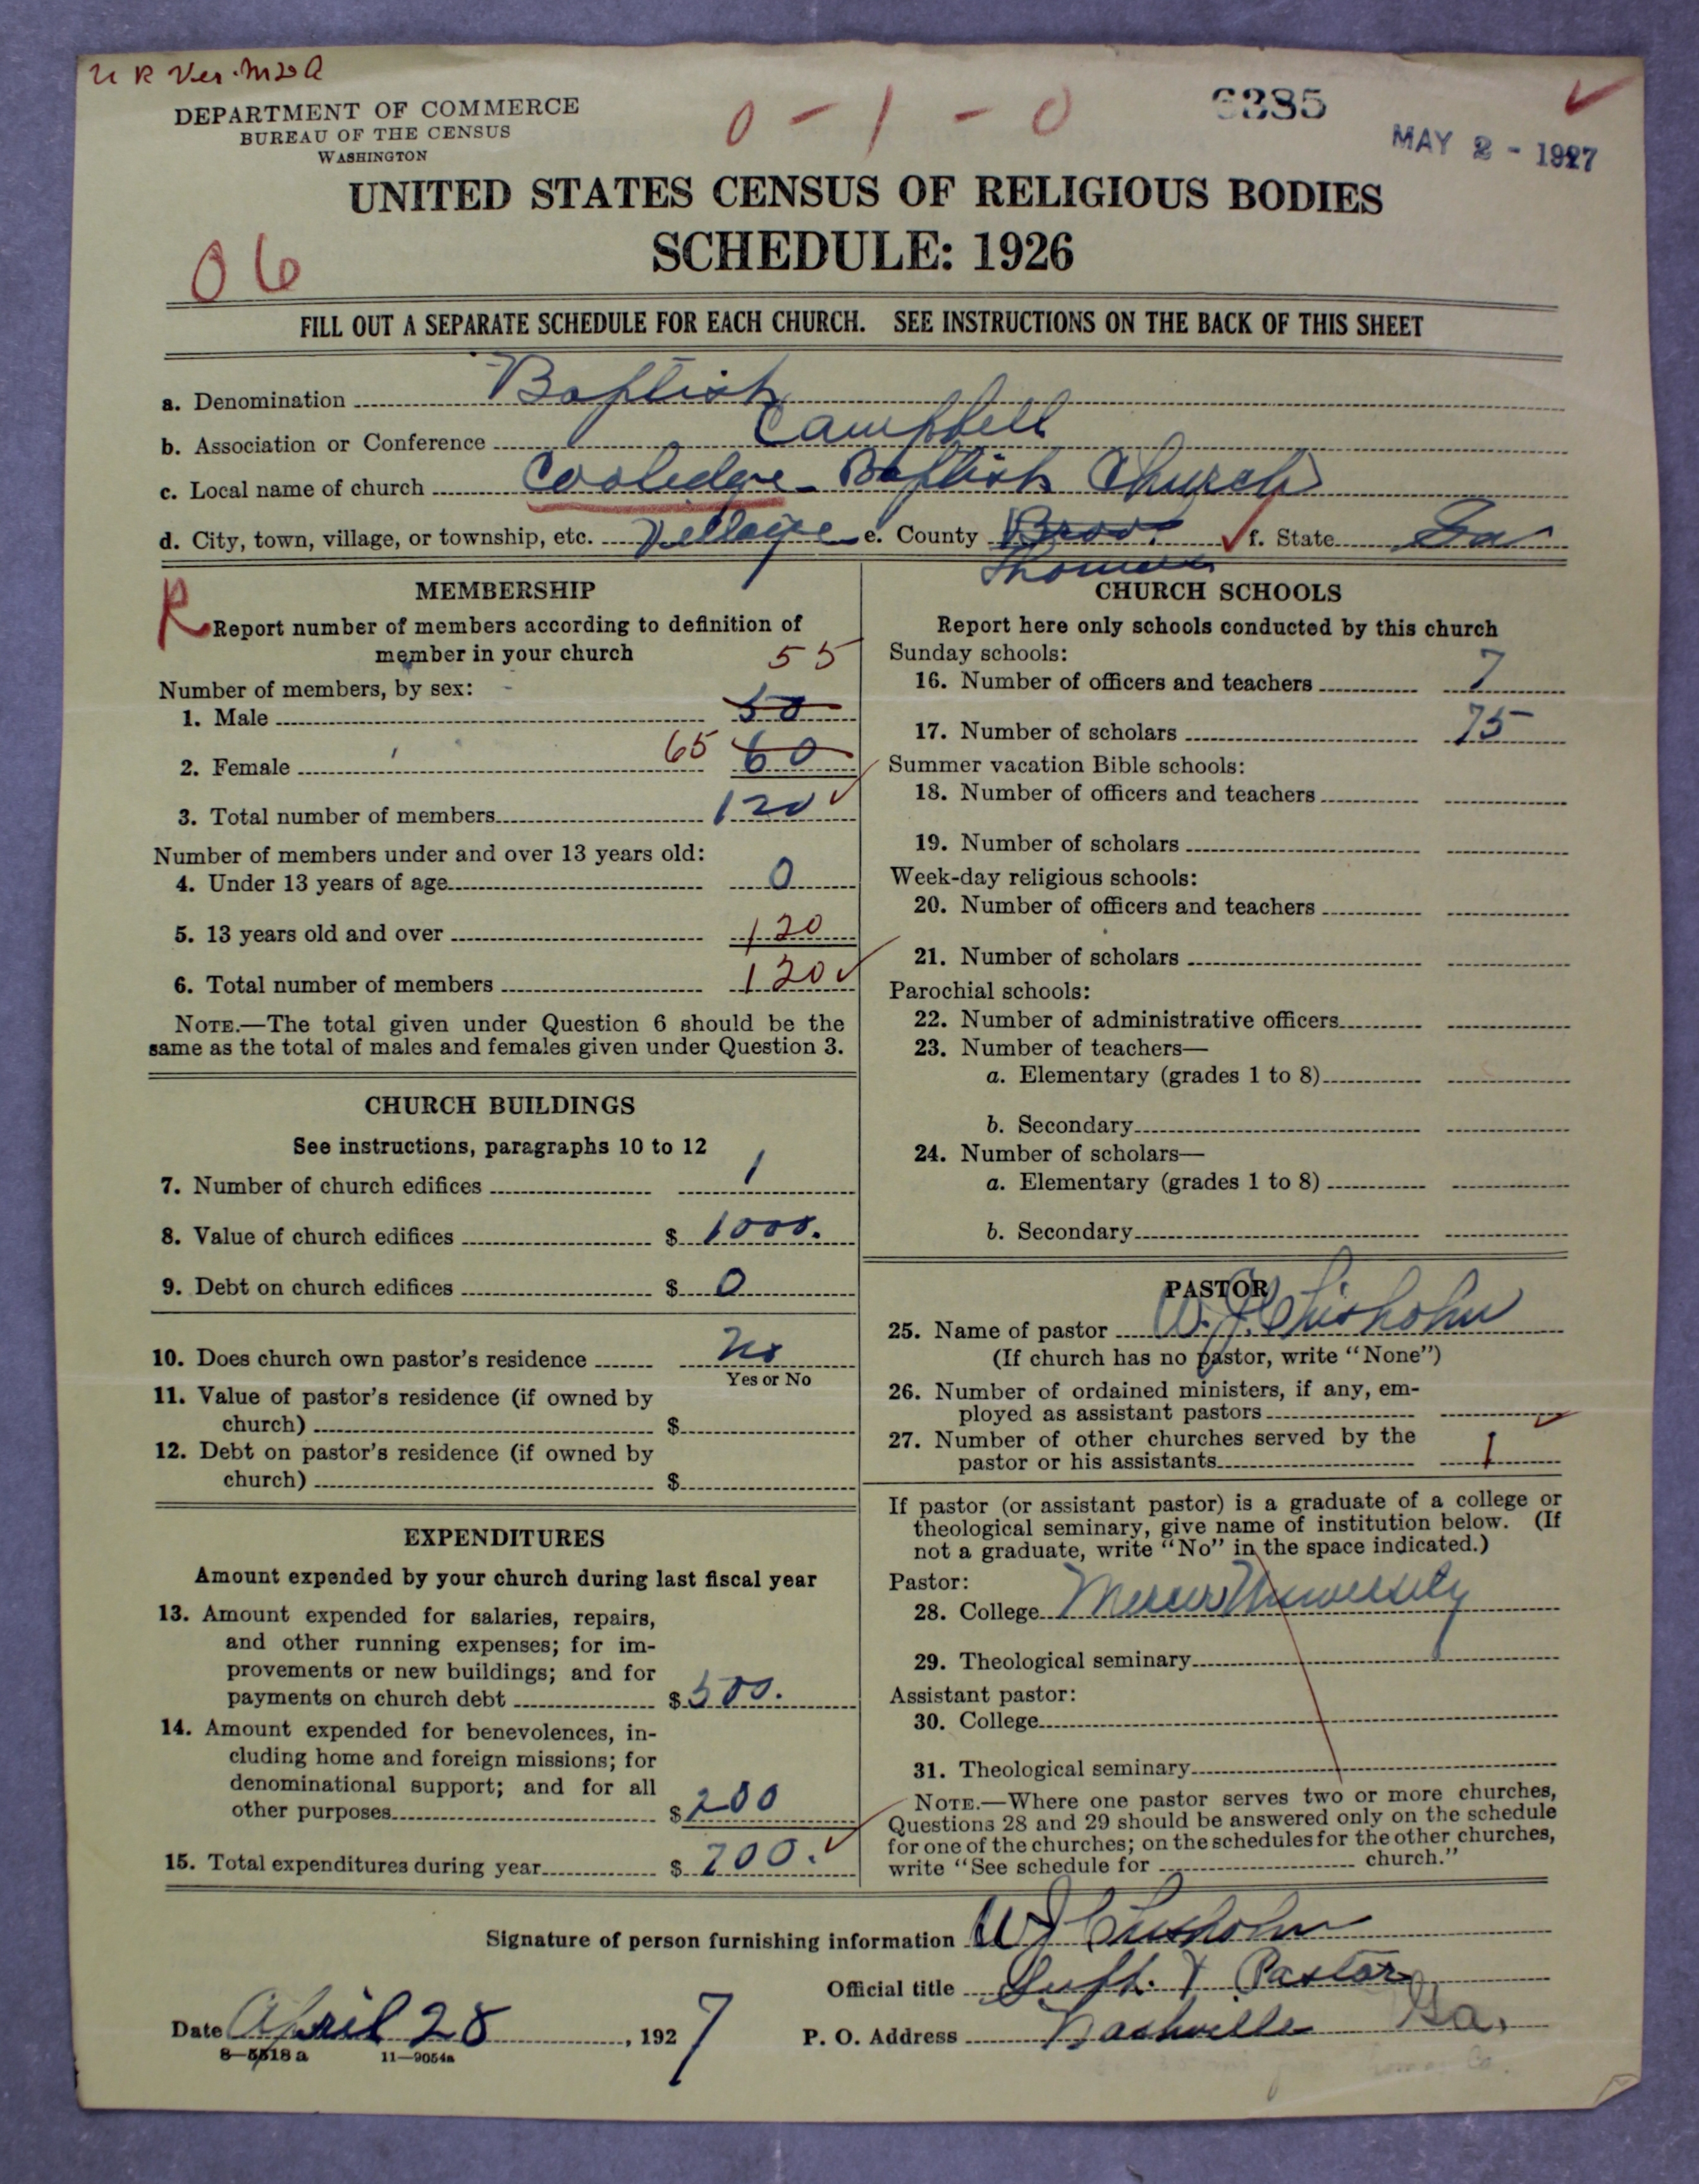 U R Ver. M20 A
DEPARTMENT OF COMMERCE
BUREAU OF THE CENSUS
WASHINGTON
0 - 1 - 0
6385
MAY 2 - 1927
UNITED STATES CENSUS OF RELIGIOUS BODIES
SCHEDULE: 1926
06
FILL OUT A SEPARATE SCHEDULE FOR EACH CHURCH. SEE INSTRUCTIONS ON THE BACK OF THIS SHEET
a. Denomination Baptist
b. Association or Conference Campbell
c. Local name of church Coolidge Baptist Church
d. City, town, village, or township, etc. Village e. County Thomas f. State Ga
R
MEMBERSHIP
Report number of members according to definition of
member in your church
Number of members, by sex:
1. Male 50 55
2. Female 65 60
3. Total number of members 120
Number of members under and over 13 years old:
4. Under 13 years of age 0
5. 13 years old and over 120
6. Total number of members 120
NOTE.—The total given under Question 6 should be the
same as the total of males and females given under Question 3.
CHURCH BUILDINGS
See instructions, paragraphs 10 to 12
7. Number of church edifices 1
8. Value of church edifices $ 1000.
9. Debt on church edifices $ 0
10. Does church own pastor's residence No
Yes or No
11. Value of pastor's residence (if owned by
church) $
12. Debt on pastor's residence (if owned by
church) $
EXPENDITURES
Amount expended by your church during last fiscal year
13. Amount expended for salaries, repairs,
and other running expenses; for im-
provements or new buildings; and for
payments on church debt $ 500.
14. Amount expended for benevolences, in-
cluding home and foreign missions; for
denominational support; and for all
other purposes $ 200
15. Total expenditures during year $ 700.
CHURCH SCHOOLS
Report here only schools conducted by this church
Sunday schools:
16. Number of officers and teachers 7
17. Number of scholars 75
Summer vacation Bible schools:
18. Number of officers and teachers
19. Number of scholars
Week-day religious schools:
20. Number of officers and teachers
21. Number of scholars
Parochial schools:
22. Number of administrative officers
23. Number of teachers—
a. Elementary (grades 1 to 8)
b. Secondary
24. Number of scholars—
a. Elementary (grades 1 to 8)
b. Secondary
PASTOR
25. Name of pastor W. J. Chisholm
(If church has no pastor, write "None")
26. Number of ordained ministers, if any, em-
ployed as assistant pastors
27. Number of other churches served by the
pastor or his assistants 1
If pastor (or assistant pastor) is a graduate of a college or
theological seminary, give name of institution below. (If
not a graduate, write "No" in the space indicated.)
Pastor:
28. College Mercer University
29. Theological seminary
Assistant pastor:
30. College
31. Theological seminary
NOTE.—Where one pastor serves two or more churches,
Questions 28 and 29 should be answered only on the schedule
for one of the churches; on the schedules for the other churches,
write "See schedule for church."
Signature of person furnishing information W J Chisholm
Official title Supt. & Pastor
Date April 28, 1927
P. O. Address Nashville Ga.
8-5518 a 11—9054a